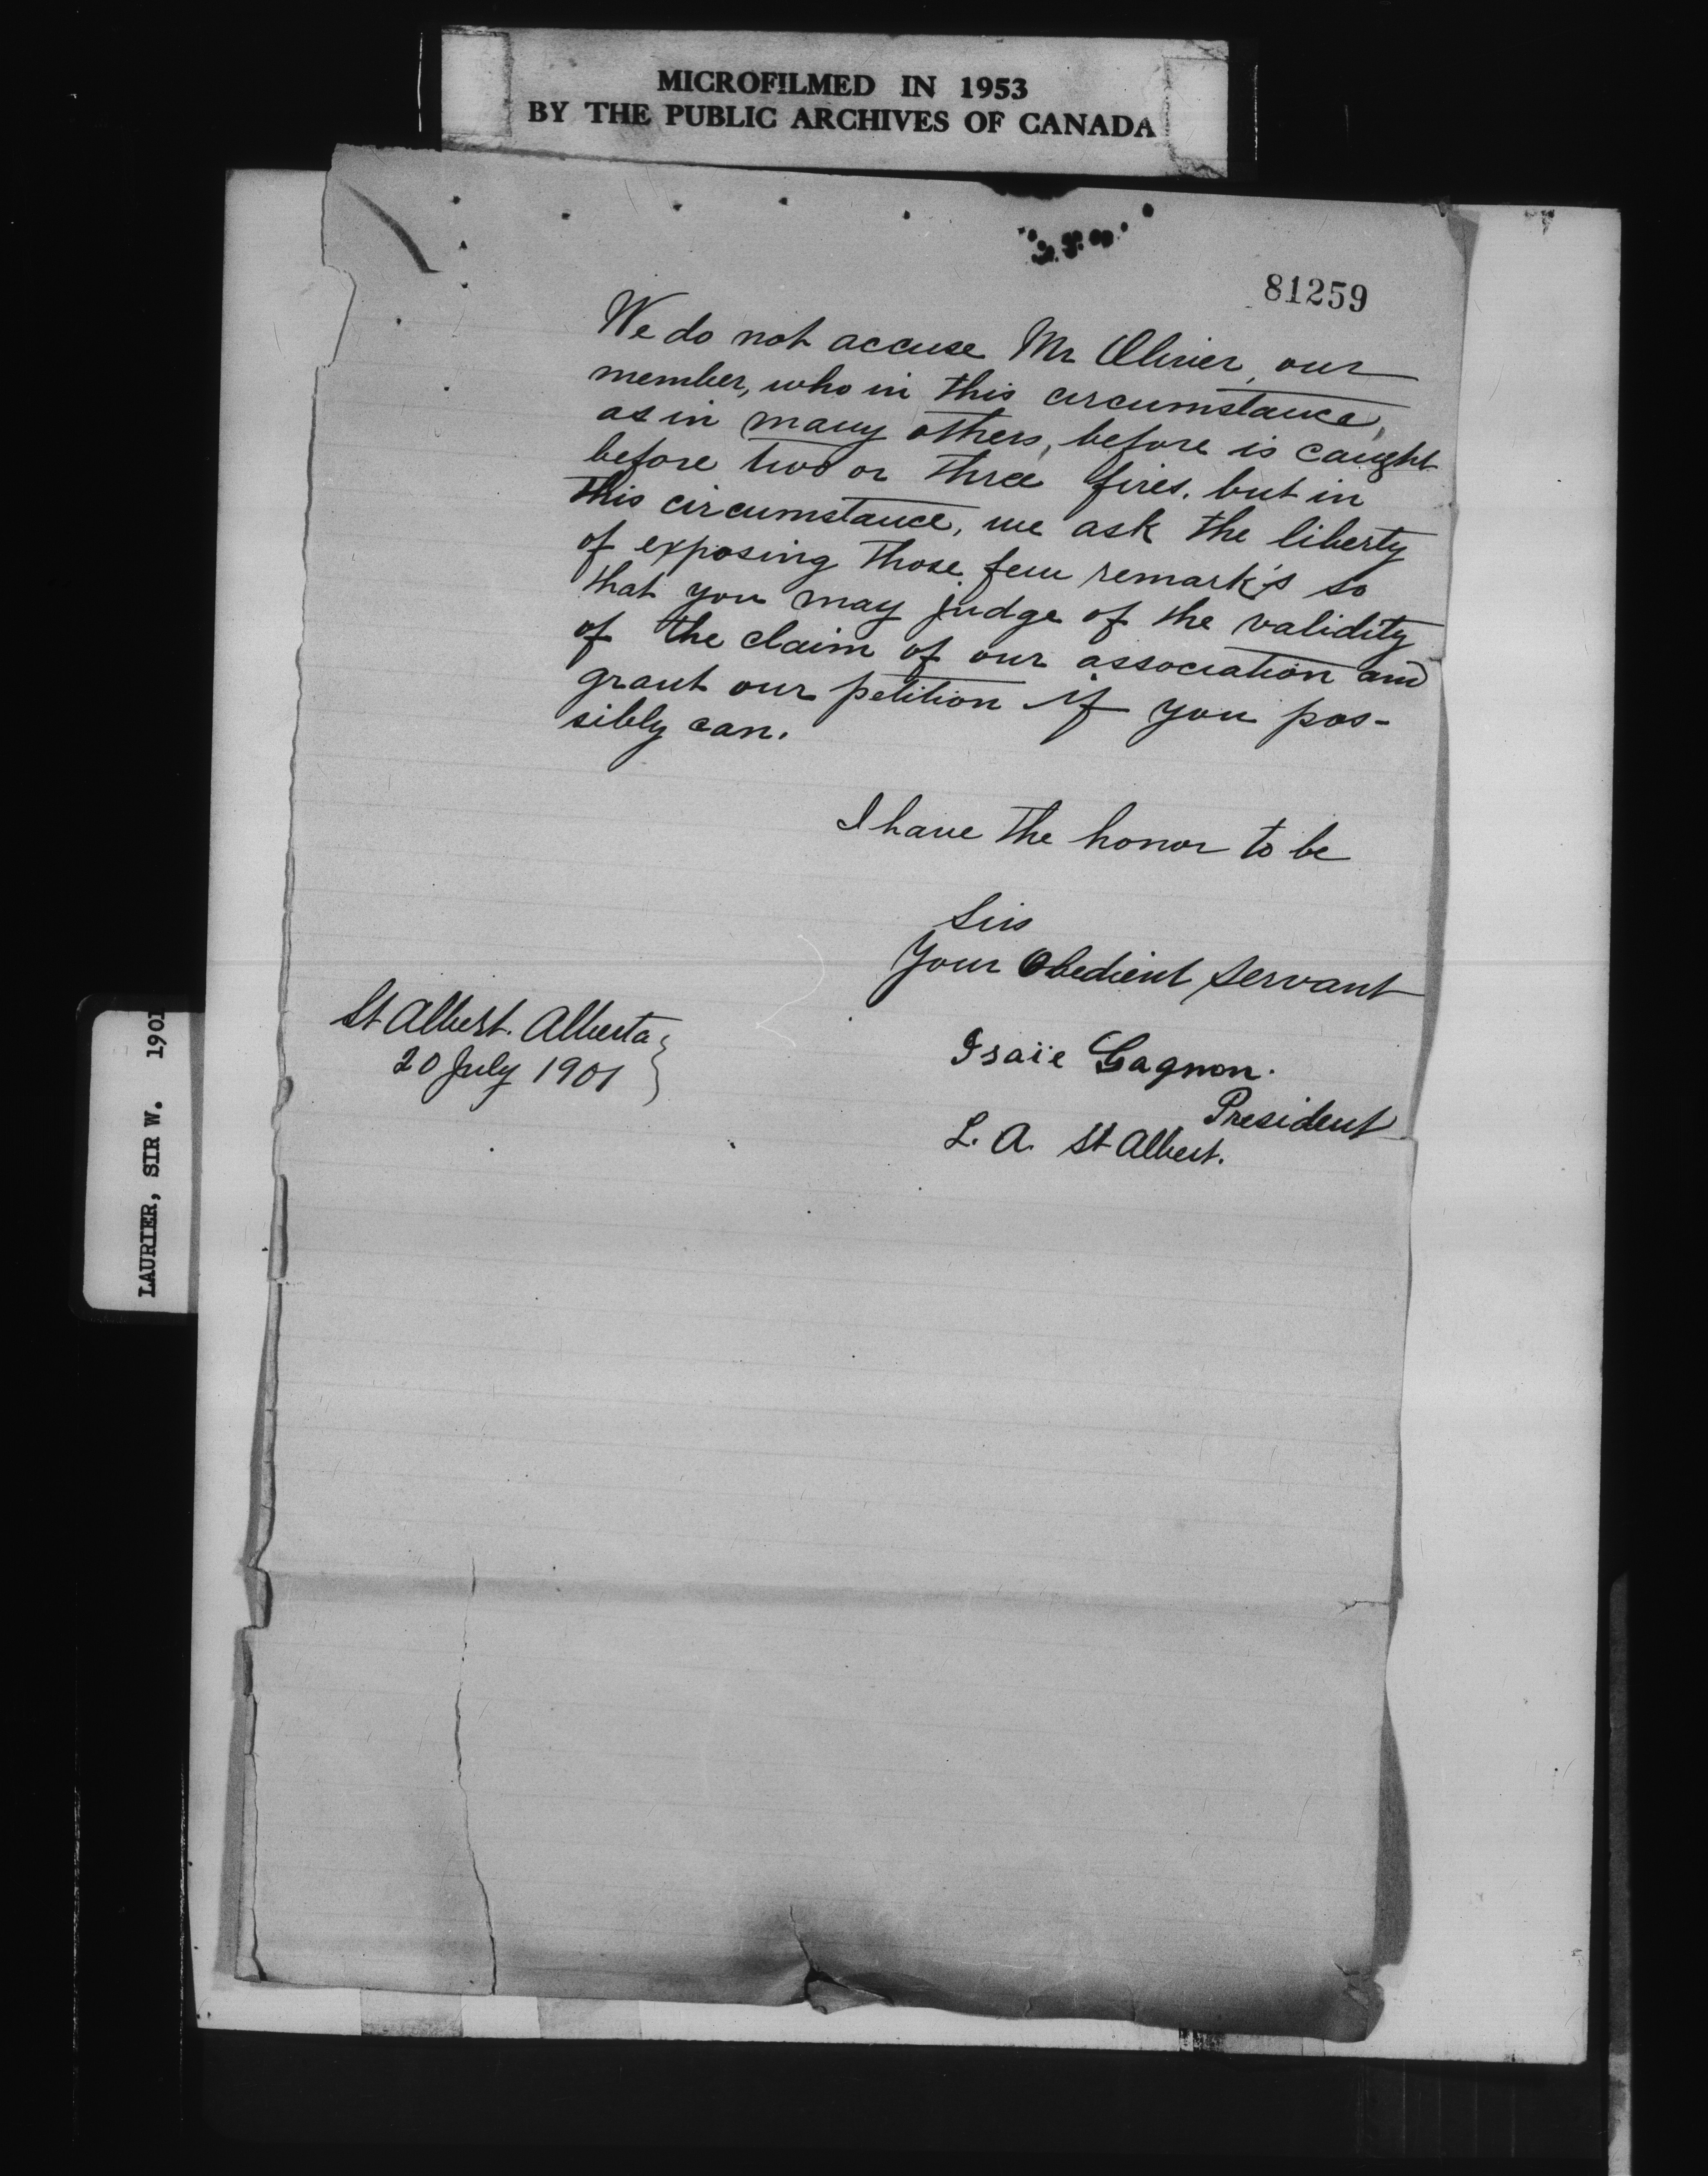 MICROFILMED IN 1953
BY THE PUBLIC ARCHIVES OF CANADA
81259
We do not accuse Mr Olivier, our
member, who in this circumstance,
as in many others, before is caught
before two or three fires. but in
this circumstance, we ask the liberty
of exposing those few remark's so
that you may judge of the validity
of the claim of our association and
grant our petition if you pos-
sibly can.
I have the honor to be
Sirs
Your Obedient Servant
St Albert. Alberta
20 July 1901
Isaïe Gagnon.
President
L. A. St Albert.
LAURIER, SIR W. 1901